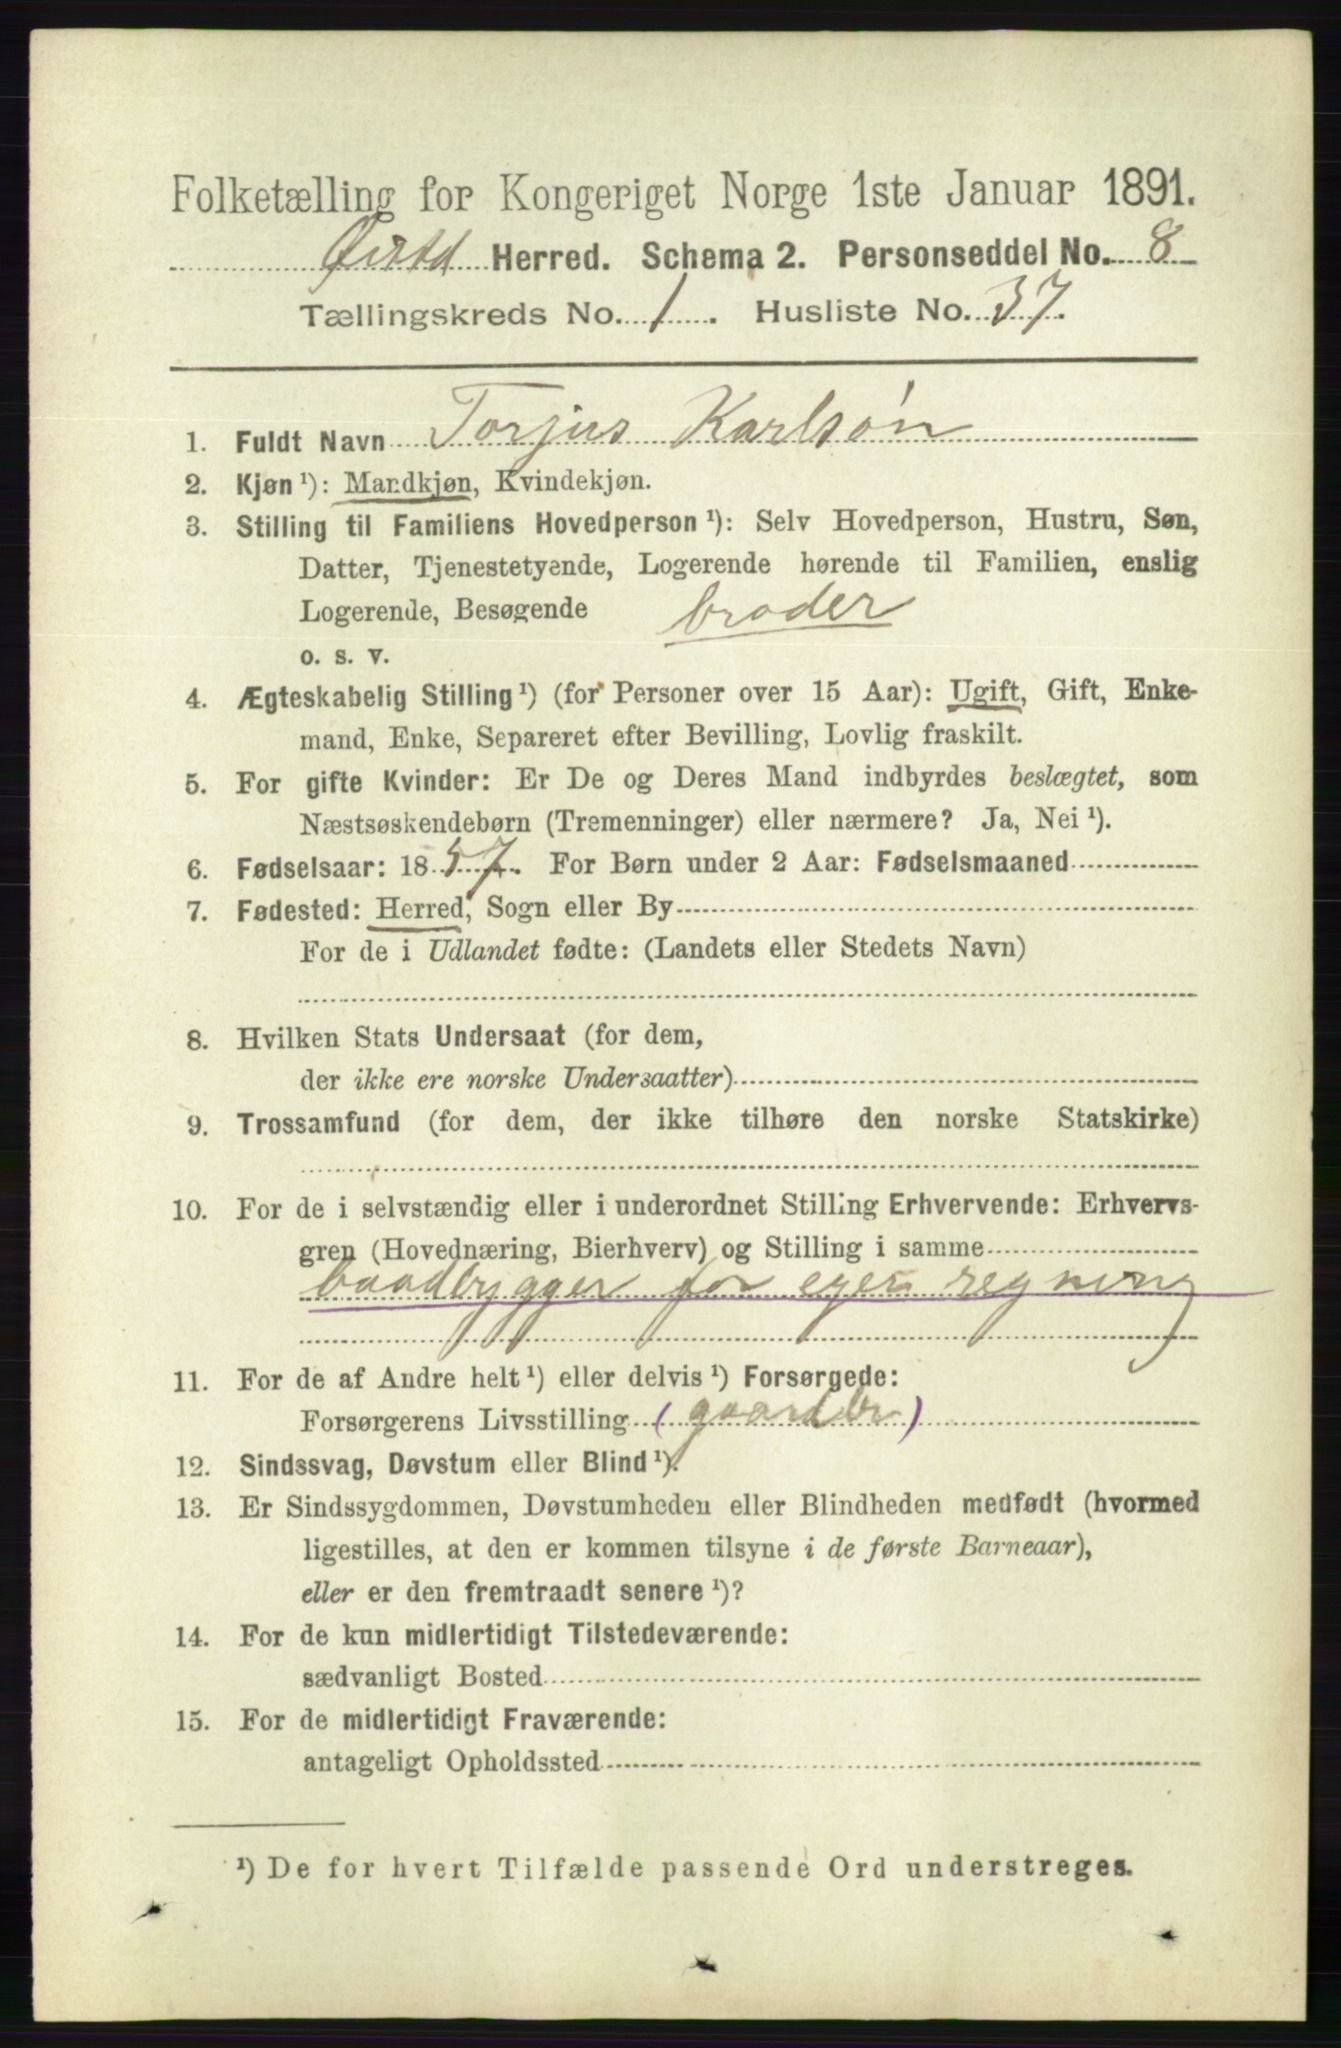 Folketælling for Kongeriget Norge 1ste Januar 1891.
Herred. Schema 2. Personseddel No. 8
Tællingskreds No. 1. Husliste No. 37.
1. Fuldt Navn Torjus Karlsøn
2. Kjøn ¹): Mandkjøn, Kvindekjøn.
3. Stilling til Familiens Hovedperson ¹): Selv Hovedperson, Hustru, Søn,
Datter, Tjenestetyende, Logerende hørende til Familien, enslig
Logerende, Besøgende broder
o. s. v.
4. Ægteskabelig Stilling ¹) (for Personer over 15 Aar): Ugift, Gift, Enke-
mand, Enke, Separeret efter Bevilling, Lovlig fraskilt.
5. For gifte Kvinder: Er De og Deres Mand indbyrdes beslægtet, som
Næstsøskendebørn (Tremenninger) eller nærmere? Ja, Nei ¹).
6. Fødselsaar: 1857. For Børn under 2 Aar: Fødselsmaaned
7. Fødested: Herred, Sogn eller By
For de i Udlandet fødte: (Landets eller Stedets Navn)
8. Hvilken Stats Undersaat (for dem,
der ikke ere norske Undersaatter)
9. Trossamfund (for dem, der ikke tilhøre den norske Statskirke)
10. For de i selvstændig eller i underordnet Stilling Erhvervende: Erhvervs-
gren (Hovednæring, Bierhverv) og Stilling i samme
baadbygger for egen regning
11. For de af Andre helt ¹) eller delvis ¹) Forsørgede:
Forsørgerens Livsstilling (gaardbr)
12. Sindssvag, Døvstum eller Blind ¹).
13. Er Sindssygdommen, Døvstumheden eller Blindheden medfødt (hvormed
ligestilles, at den er kommen tilsyne i de første Barneaar),
eller er den fremtraadt senere ¹)?
14. For de kun midlertidigt Tilstedeværende:
sædvanligt Bosted
15. For de midlertidigt Fraværende:
antageligt Opholdssted
¹) De for hvert Tilfælde passende Ord understreges.